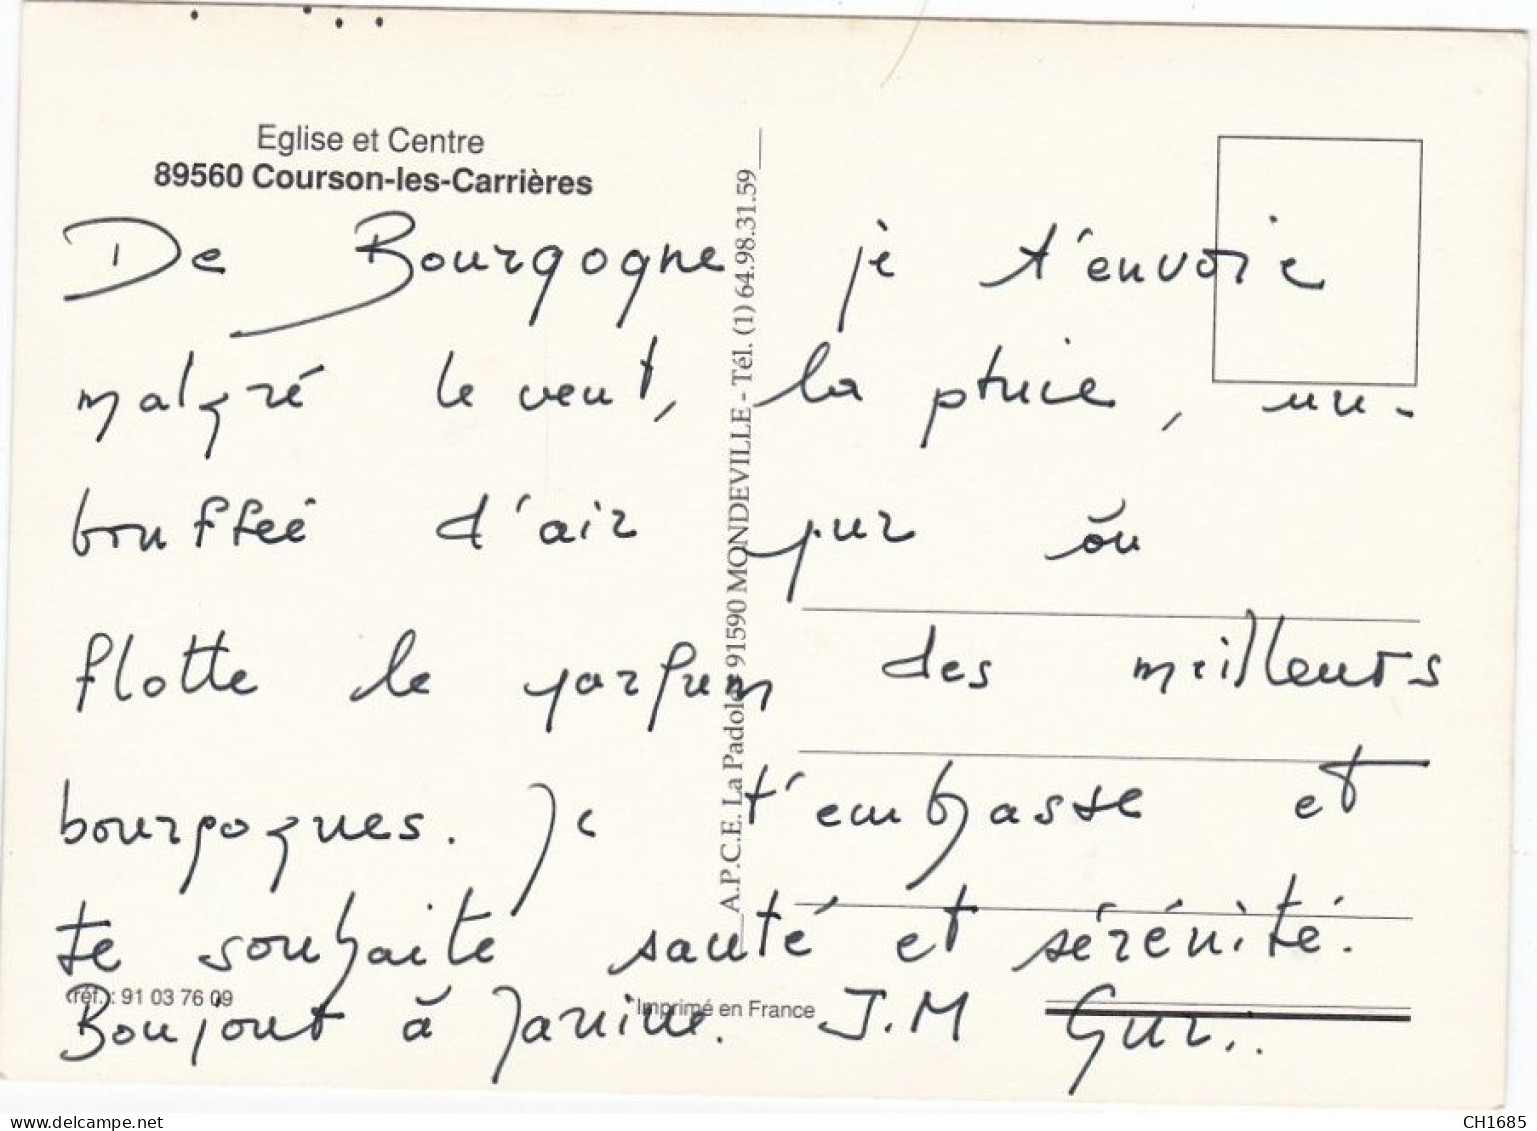 Eglise et Centre
89560 Courson-les-Carrières
De Bourgogne je t'envoie
malgré le vent, la pluie, une
bouffée d'air pur où
flotte le parfum des meilleurs
bourgognes. Je t'embrasse et
te souhaite santé et sérénité.
Bonjour à Janine. J.M
réf. : 91 03 76 09
Imprimé en France
A.P.C.E. La Padole 91590 MONDEVILLE - Tél. (1) 64.98.31.59
www.delcampe.net
CH1685